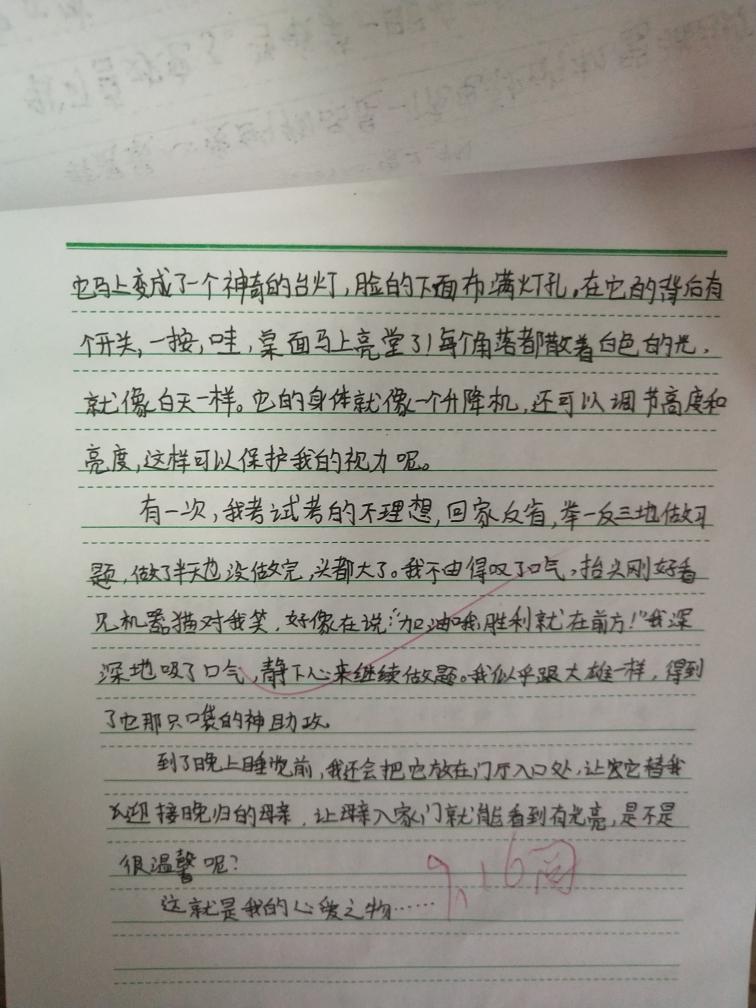 它马上变成了一个神奇的台灯,脸的下面布满灯孔,在它的背后有
个开关,一按,哇,桌面马上亮堂了!每个角落都散着白色的光,
就像白天一样。它的身体就像一个升降机,还可以调节高度和
亮度,这样可以保护我的视力呢。
有一次,我考试考的不理想,回家反省,举一反三地做习
题,做了半天也没做完,头都大了。我不由得叹了口气,抬头刚好看
见机器猫对我笑,好像在说:“加油哦,胜利就在前方!”我深
深地吸了口气,静下心来继续做题。我似乎跟大雄一样,得到
了它那只口袋的神助攻。
到了晚上睡觉前,我还会把它放在门厅入口处,让它替我
迎接晚归的母亲,让母亲入家门就能看到有光亮,是不是
很温馨呢?
这就是我的心爱之物……
9.16阅